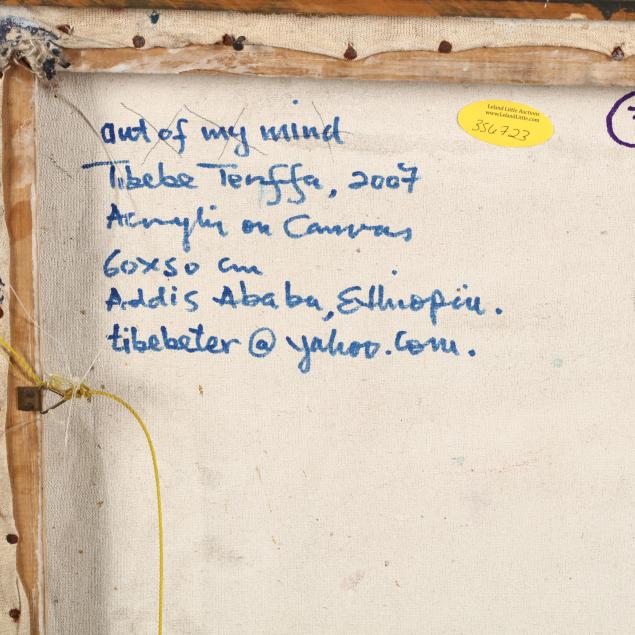 out of my mind
Tibebe Terffa, 2007
Acrylic on Canvas
60x50 cm
Addis Ababa, Ethiopia.
tibebeter@yahoo.com.
Leland Little Auctions
www.LelandLittle.com
356723